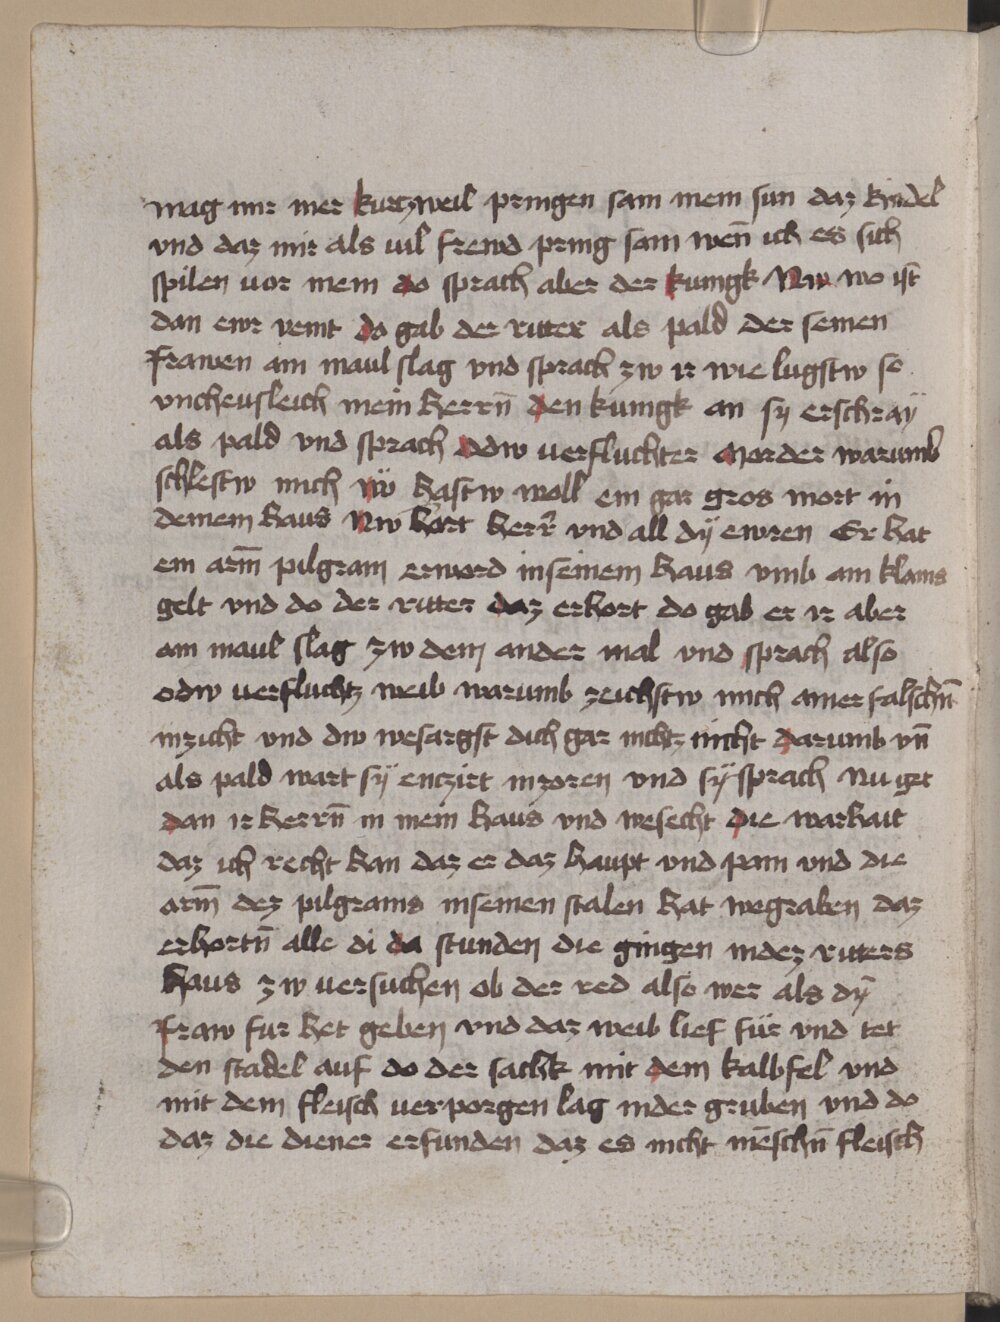 mag mir mer kurtzweil pringen sam mein sun daz kindel
vnd daz mir als uil frewd pring sam wen̄ ich es sich
spilen vor mein do sprach aber der kunigk Nw wo ist
dan ewr veint do gab der ritter als pald der seinen
frawen ain maul slag vnd sprach zw ir wie lugstw so
vncheusleich mein herrn̄ den kunigk an sy erschray
als pald vnd sprach Odw verfluchter morder warumb
schlestw mich nw hastw woll ein gar gros mort in
deinem haus Nw hort herr̄ vnd all dÿ ewren Er hat
ein arm̄ pilgram erword inseinem haus vmb ain klains
gelt vnd do der ritter daz erhort do gab er ir aber
ain maul slag zw dem ander mal vnd sprach also
odw verfluchtz weib warumb zeichstw mich ainer falschn̄
inzicht vnd dw wesargst dich gar nichtz nicht darumb vn̄
als pald wart sÿ enczirt inzoren vnd sÿ sprach Nu get
dan ir herrn̄ in mein haus vnd wesecht die warhait
daz ich recht han daz er daz haupt vnd pain vnd die
arm̄ dez pilgrams inseinen stalen hat wegraben daz
erhortn̄ alle di da stunden die gingen indez ritters
haus zw versuchen ob der red also wer als dÿ
fraw fur het geben vnd daz weib lief für vnd tet
den stadel auf do der sachk mit dem kalbfel vnd
mit dem fleisch verporgen lag inder gruben vnd do
daz die diener erfunden daz es nicht mēschn̄ fleisch